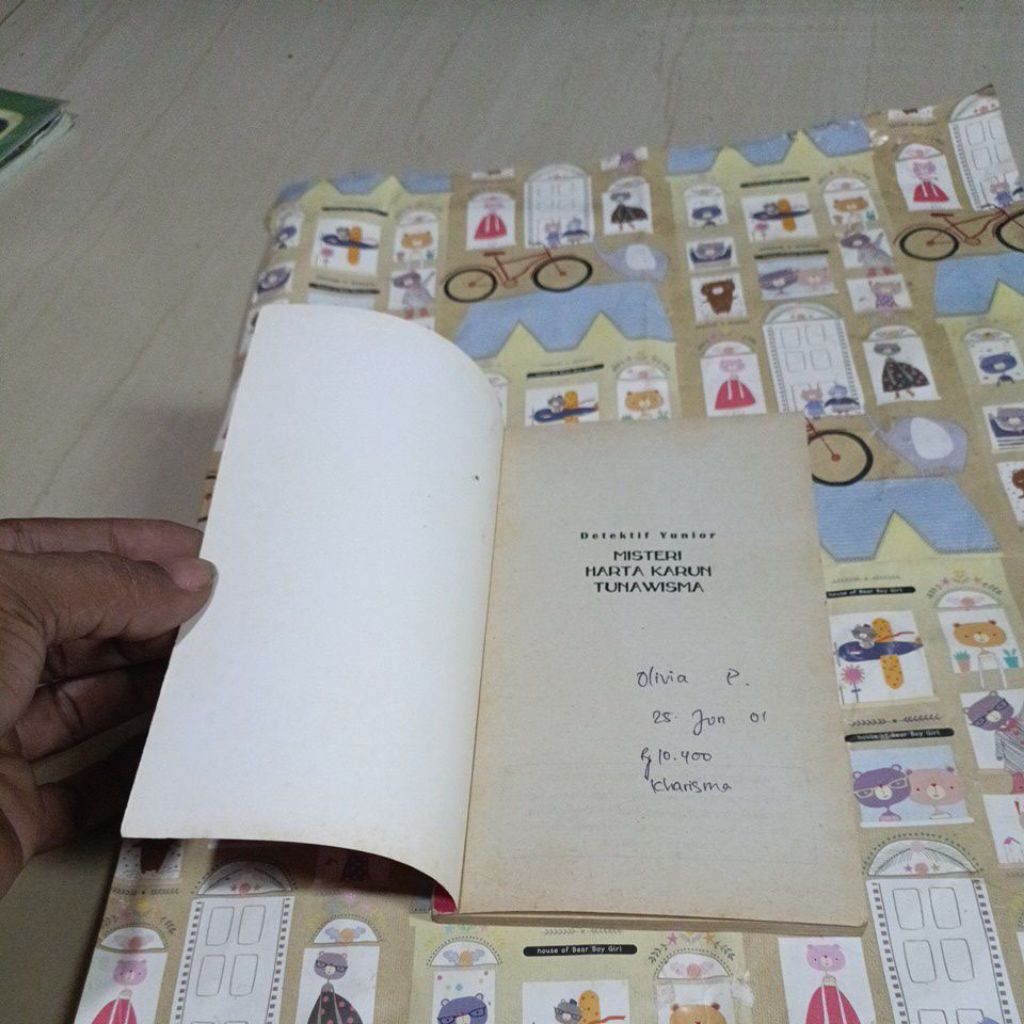 Detektif Yunior
MISTERI
HARTA KARUN
TUNAWISMA
Olivia P.
25 Jun 01
Rp 10.400
Kharisma
house of Bear Boy Girl
house of Bear Boy Girl
house of Bear Boy Girl